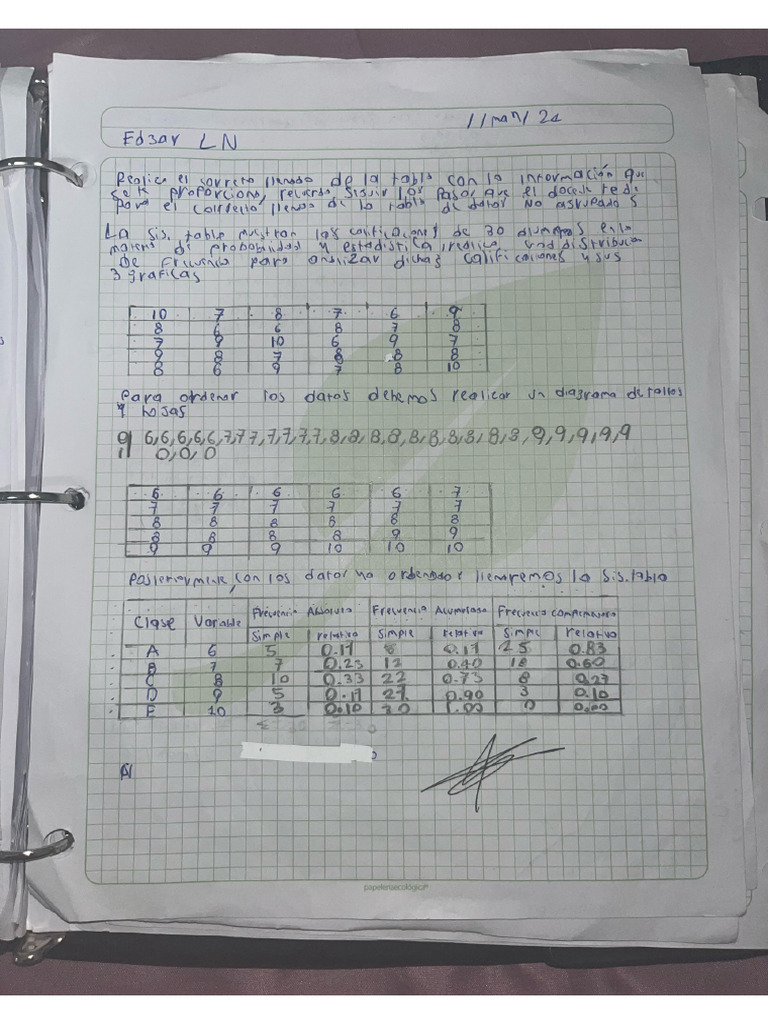 11/mar/21
Edgar LN
Realice el correcto llenado de la tabla con la información que
se te proporciono, recuerda seguir los pasos que el docente te dio
para el correcto llenado de la tabla de datos No agrupados
La sis. tabla muestran las calificaciones de 30 alumnos en la
materia de probabilidad y estadistica, realice una distribucion
De Frecuencia para analizar dichas calificaciones y sus
3 graficas
10 7 8 7 6 9
8 6 6 8 7 8
7 9 10 6 9 7
9 8 7 8 8 8
8 6 9 7 8 10
Para ordenar los datos debemos realizar un diagrama de tallos
y hojas
0| 6,6,6,6,6,7,7,7,7,7,7,7,8,8,8,8,8,8,8,8,8,8,9,9,9,9,9
1| 0,0,0
6 6 6 6 6 7
7 7 7 7 7 7
8 8 8 8 8 8
8 8 8 8 9 9
9 9 9 10 10 10
Posteriormente, con los datos ya ordenados llenaremos la sis. tabla
Clase Variable Frecuencia Absoluta Frecuencia Acumulada Frecuencia complementaria
simple relativa simple relativa simple relativa
A 6 5 0.17 5 0.17 25 0.83
B 7 7 0.23 12 0.40 18 0.60
C 8 10 0.33 22 0.73 8 0.27
D 9 5 0.17 27 0.90 3 0.10
E 10 3 0.10 30 1.00 0 0.00
papeleriaecológica